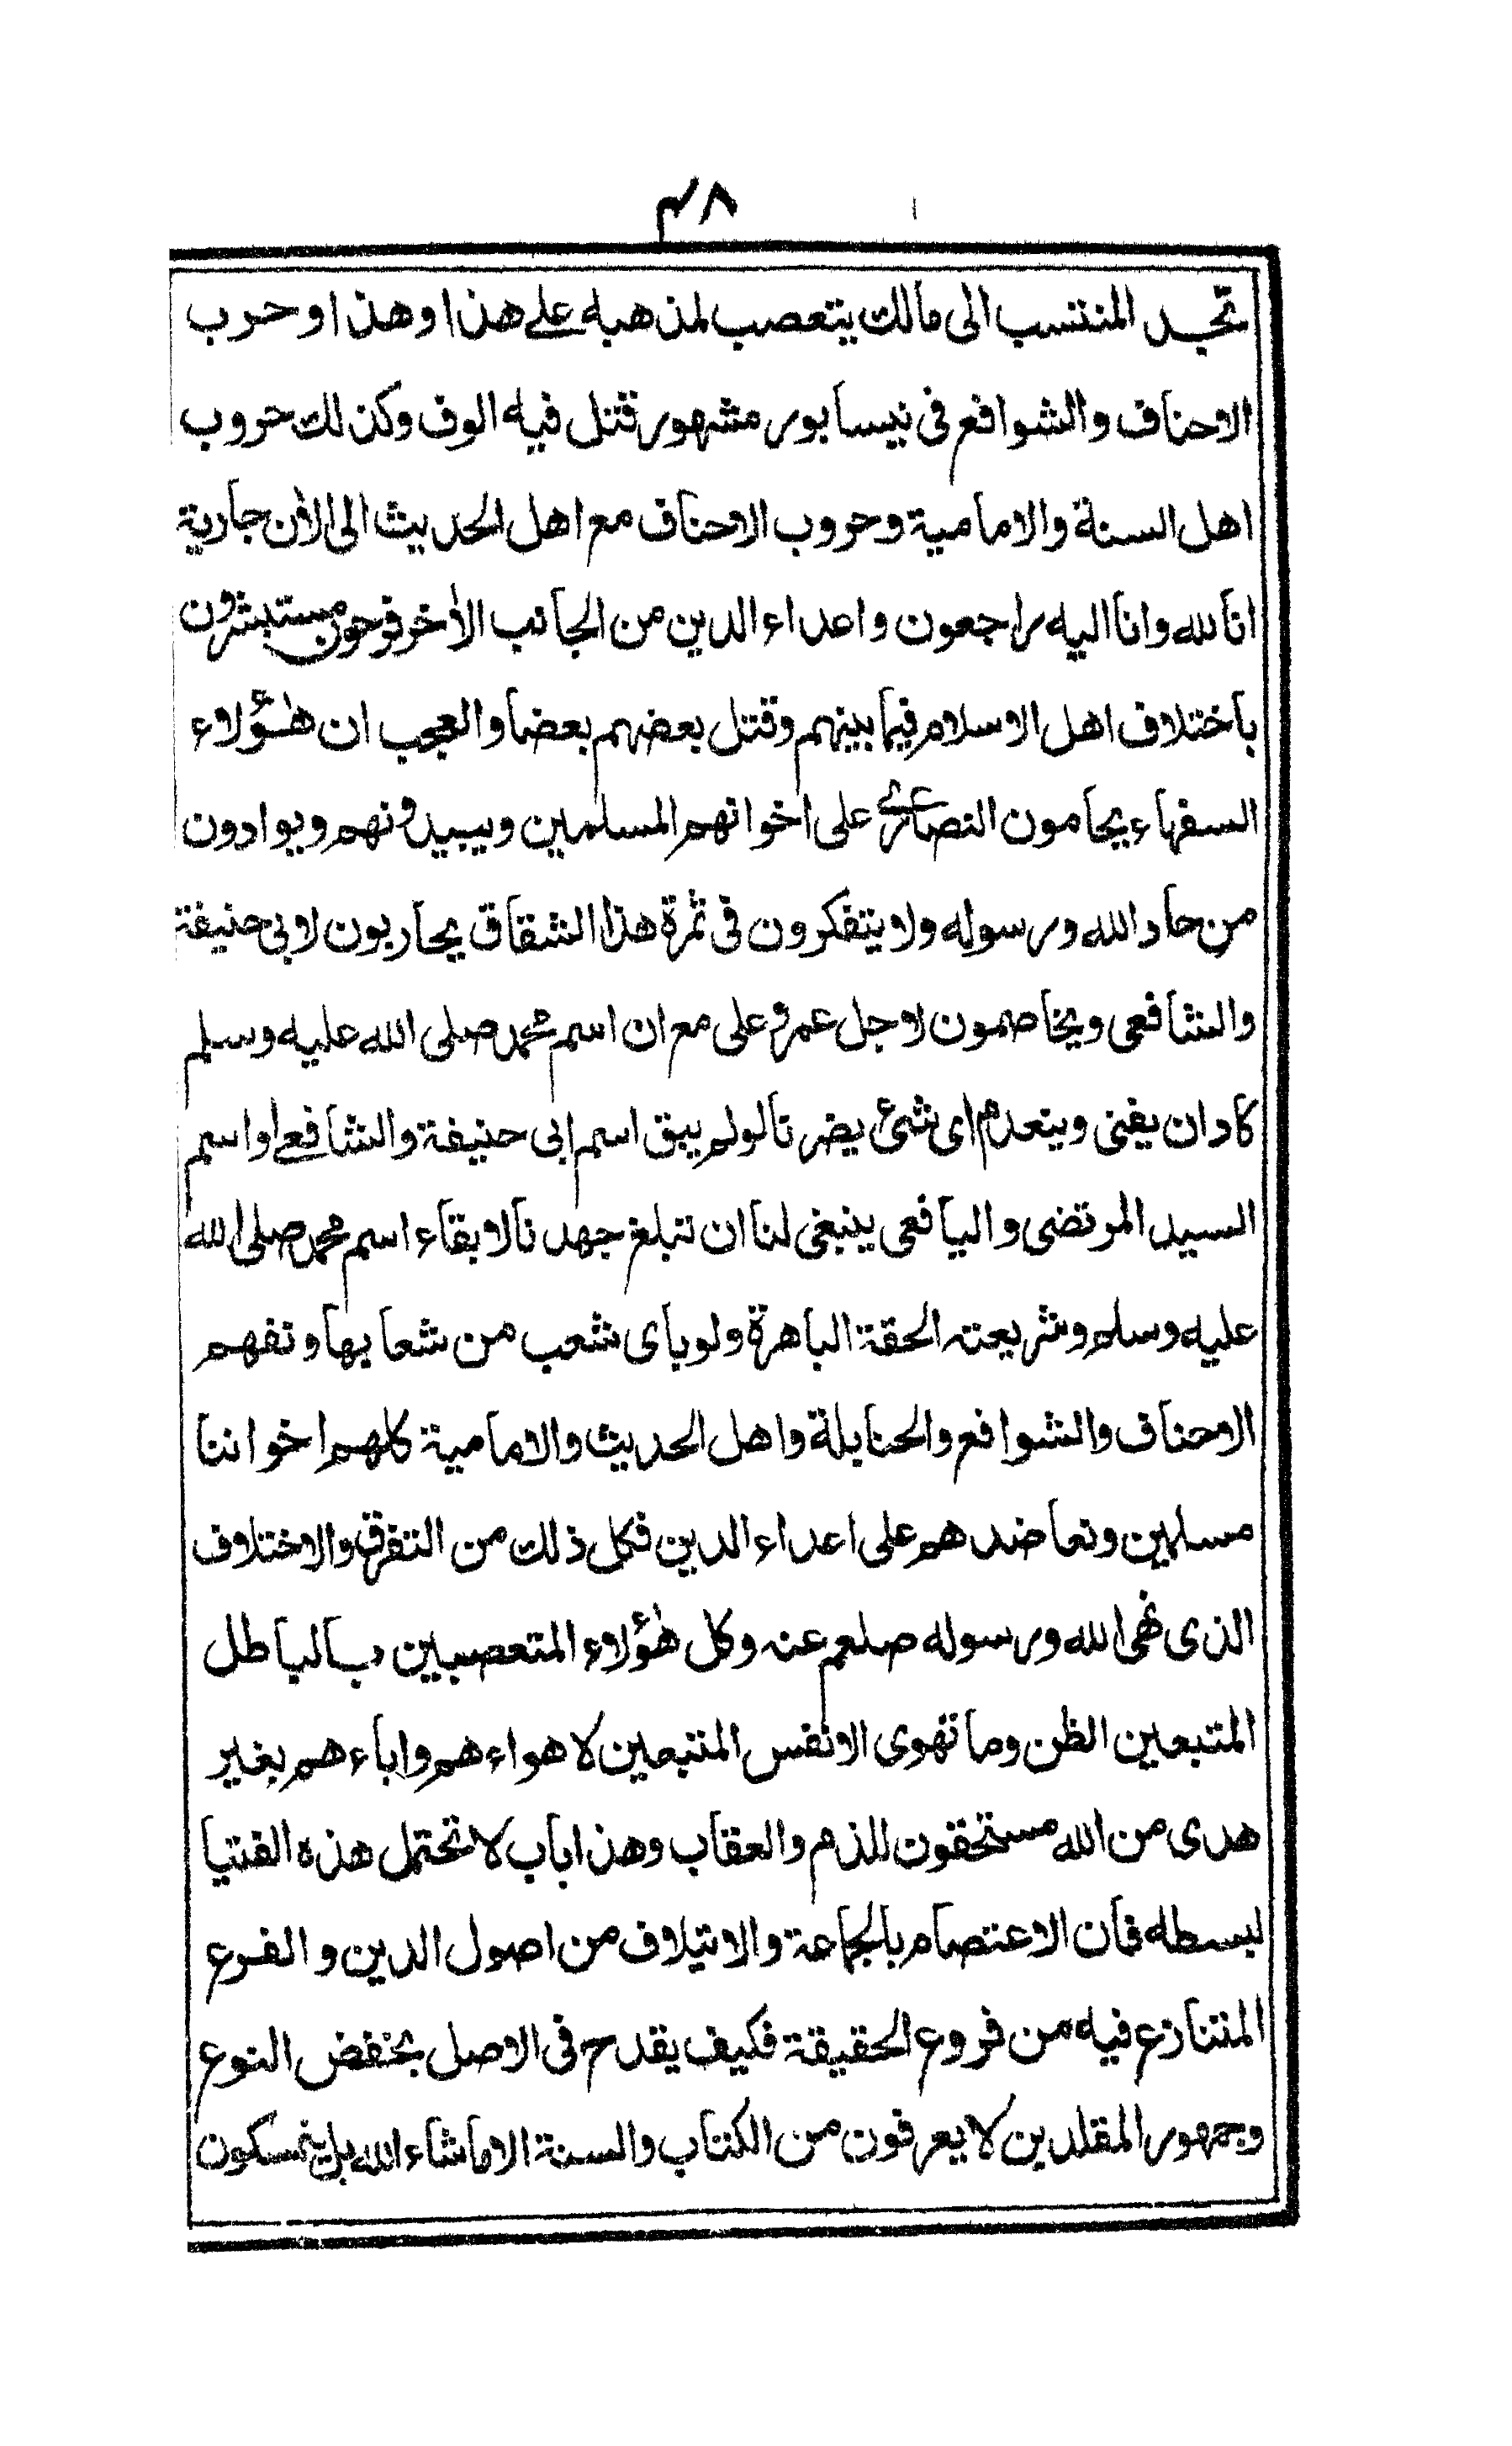 ٤٨
تجد المنتسب الى مالك يتعصب لمذهبه على هذا وهذا وحرب
الاحناف والشوافع فى نيسابور مشهور قتل فيه الوف وكذلك حروب
اهل السنة والامامية وحروب الاحناف مع اهل الحديث الى الأن جارية
انا لله وانا اليه راجعون واعداء الدين من الجانب الأخر فرحون مستبشرون
باختلاف اهل الاسلام فيما بينهم وقتل بعضهم بعضا والعجب ان هٰؤلاء
السفهاء يحامون النصارى على اخوانهم المسلمين ويبيدونهم ويوادون
من حاد الله ورسوله ولا يتفكرون فى ثمرة هذا الشقاق يحاربون لابى حنيفة
والشافعى ويخاصمون لاجل عمر وعلى مع ان اسم محمد صلى الله عليه وسلم
كاد ان يفنى وينعدم اى شئ يضرنا لو لم يبق اسم ابى حنيفة والشافعى او اسم
السيد المرتضى واليافعى ينبغى لنا ان نبلغ جهدنا لابقاء اسم محمد صلى الله
عليه وسلم وشريعته الحقة الباهرة ولو باى شعب من شعابها ونفهم
الاحناف والشوافع والحنابلة واهل الحديث والامامية كلهم اخواننا
مسلمين ونعاضدهم على اعداء الدين فكل ذلك من التفرق والاختلاف
الذى نهى الله ورسوله صلعم عنه وكل هٰؤلاء المتعصبين بالباطل
المتبعين الظن وما تهوى الانفس المتبعين لاهواءهم واباءهم بغير
هدى من الله مستحقون للذم والعقاب وهذا باب لا تحتمل هذه الفتيا
لبسطه فان الاعتصام بالجماعة والايتلاف من اصول الدين والفرع
المتنازع فيه من فروع الحقيقة فكيف يقدح فى الاصل بخفض النوع
وجمهور المقلدين لا يعرفون من الكتاب والسنة الا ما شاء الله بل يتمسكون